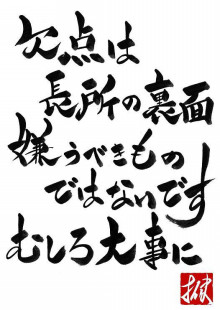 欠点は
長所の裏面
嫌うべきもの
ではないです
むしろ大事に